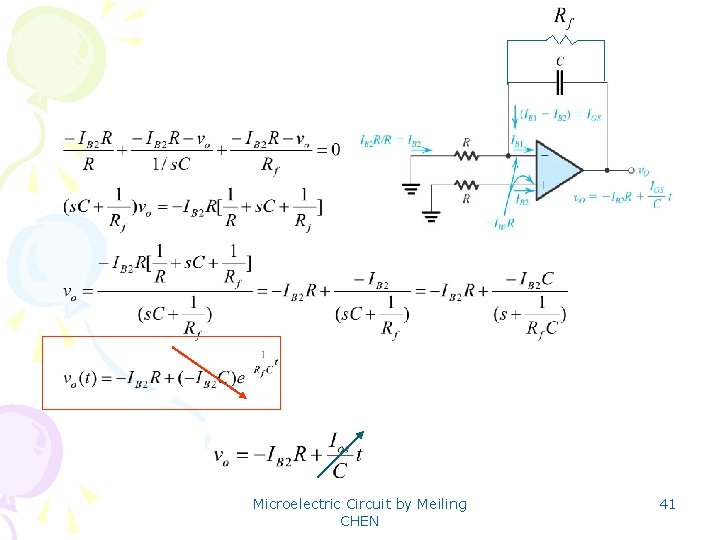 R_f
C
(I_{B1} − I_{B2}) = I_{OS}
I_{B2}R/R = I_{B2}
R
I_{B1}
v_O
R
I_{B2}
v_O = −I_{B2}R + \frac{I_{OS}}{C} t
−I_{B2}R
\frac{−I_{B2}R}{R} + \frac{−I_{B2}R−v_o}{1/sC} + \frac{−I_{B2}R−v_o}{R_f} = 0
(sC + \frac{1}{R_f})v_o = −I_{B2}R[\frac{1}{R} + sC + \frac{1}{R_f}]
v_o = \frac{−I_{B2}R[\frac{1}{R} + sC + \frac{1}{R_f}]}{(sC + \frac{1}{R_f})} = −I_{B2}R + \frac{−I_{B2}}{(sC + \frac{1}{R_f})} = −I_{B2}R + \frac{−I_{B2}C}{(s + \frac{1}{R_fC})}
v_o(t) = −I_{B2}R + (−I_{B2}C)e^{\frac{1}{R_fC}t}
v_o = −I_{B2}R + \frac{I_{os}}{C} t
Microelectric Circuit by Meiling
CHEN
41